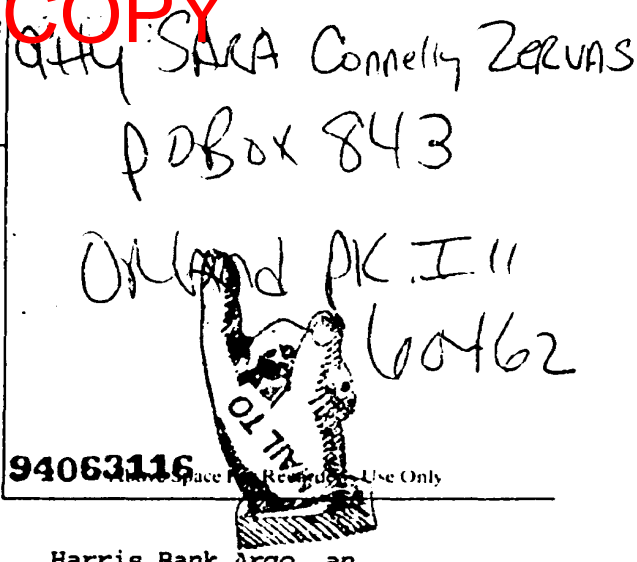 COPY
Atty SARA Connelly ZERVAS
PO Box 843
Orland PK. Ill
60462
MAIL TO
94063116
Above Space For Recorder's Use Only
Harris Bank Argo, an